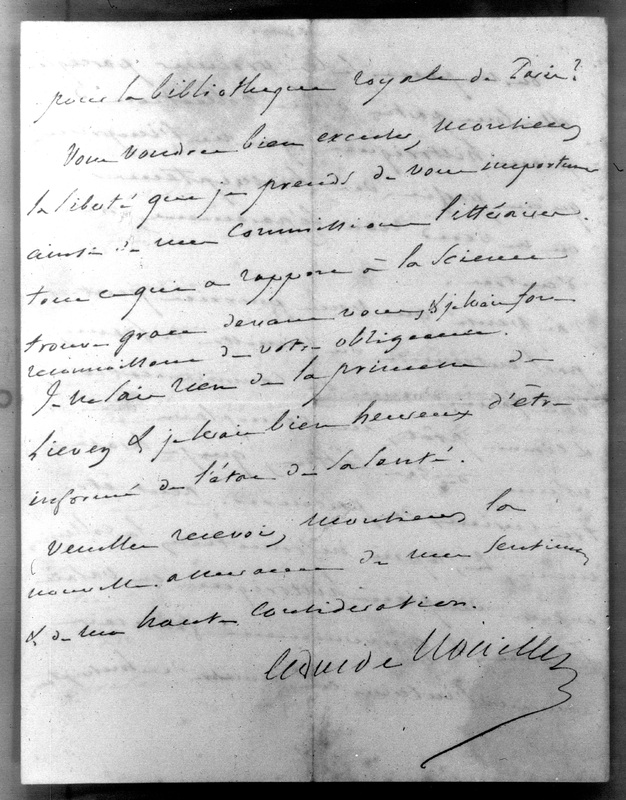 pour la bibliotheque royale de Paris?
Vous voudrez bien excuser, Monsieur,
la liberté que je prends de vous importuner
ainsi de mes commissions littéraires.
tout ce qui a rapport à la science
trouve grace devant vous, & je suis fort
reconnaissant de votre obligeance.
Je ne sais rien de la princesse de
Lieven & je serais bien heureux d'être
informé de l'état de sa santé.
Veuillez recevoir, Monsieur, la
nouvelle assurance de mes sentimens
& de ma haute considération.
le duc de Noailles